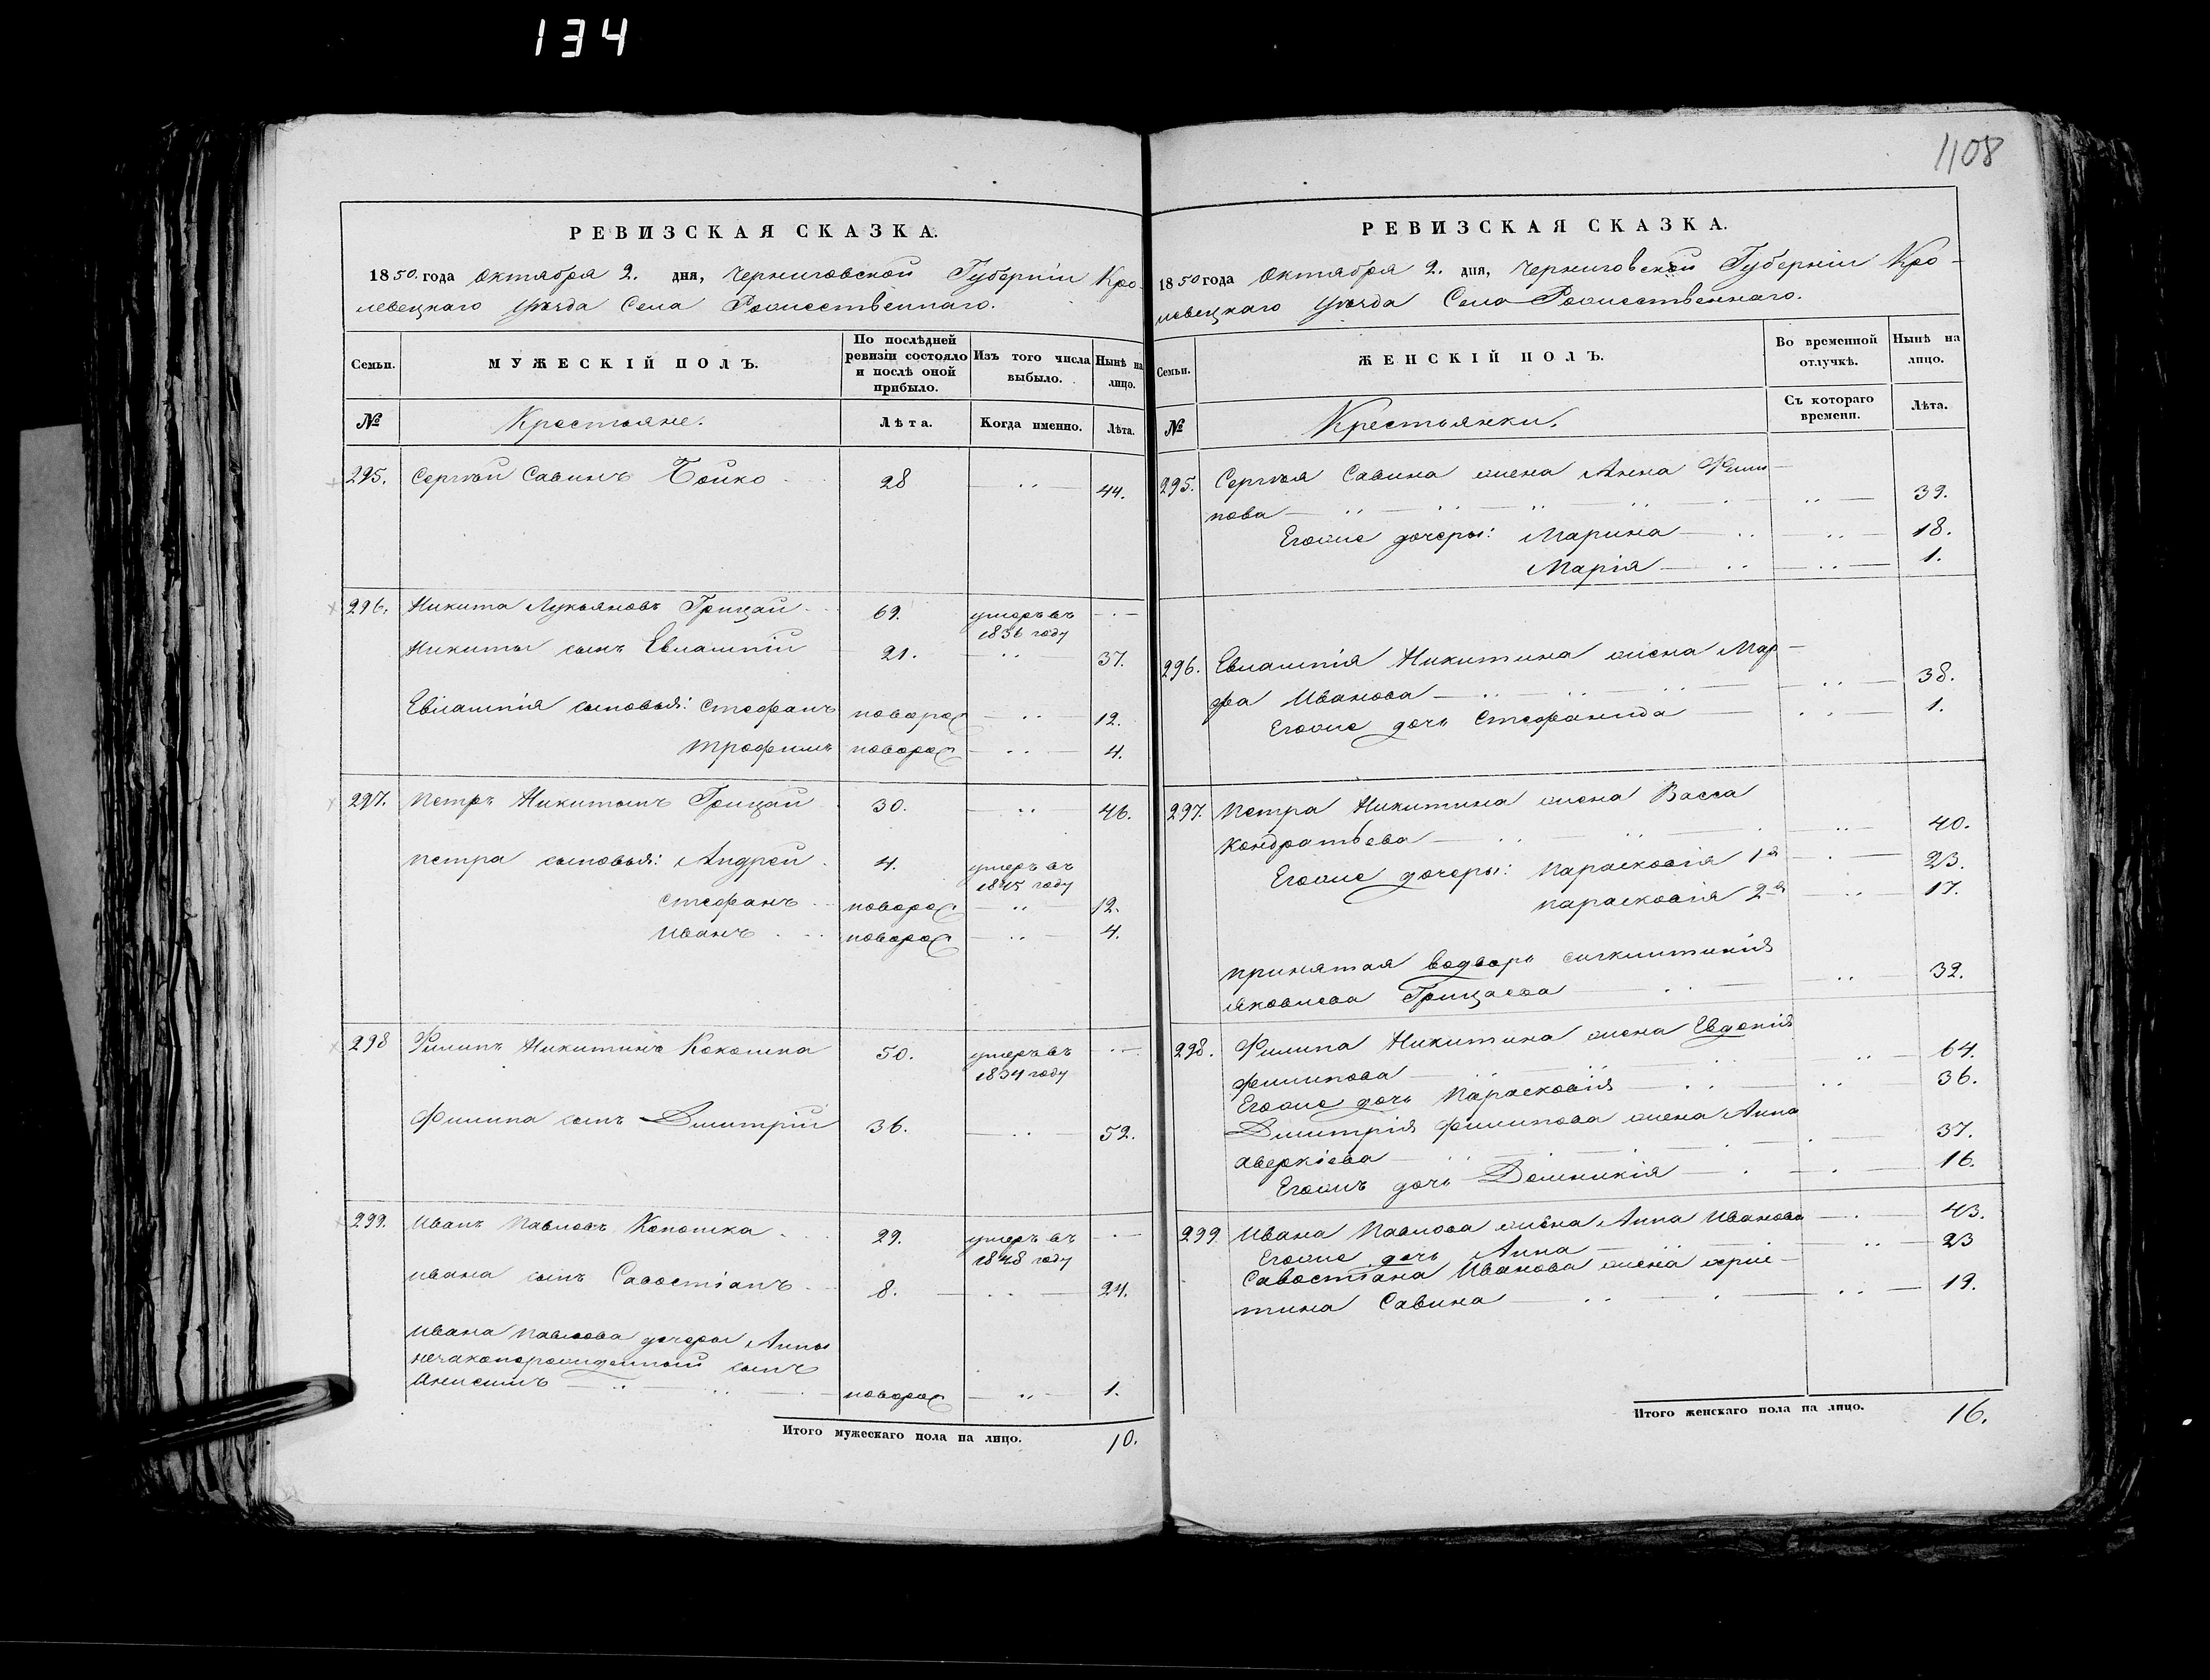 134
1108
РЕВИЗСКАЯ СКАЗКА.
1850. года Октября 2. дня, Черниговской Губерніи Кро-
левецкаго уѣзда Села Рождественнаго.
Семьи. МУЖЕСКІЙ ПОЛЪ. По послѣдней ревизіи состояло и послѣ оной прибыло. Изъ того числа выбыло. Нынѣ на лицо.
№ Крестьяне. Лѣта. Когда именно. Лѣта.
295. Сергѣй Савинъ Бойко 28 44.
296. Никита Лукьяновъ Грицай 69. умеръ въ
1836 году
Никиты сынъ Евлампій 21. 37.
Евлампія сыновья: Стефанъ новорож 12.
Трофимъ новорож 4.
297. Петръ Никитинъ Грицай 30. 46.
Петра сыновья: Андрей 4. умеръ въ
1845 году
Стефанъ новорож 12.
Иванъ новорож 4.
298 Филипъ Никитинъ Кокошка 50. умеръ въ
1834 году
Филипа сынъ Дмитрій 36. 52.
299. Иванъ Павловъ Кокошка 29. умеръ въ
1848 году
Ивана сынъ Савостіанъ 8. 24.
Ивана Павлова дочеры Анны
незаконорожденный сынъ
Анисимъ новорож 1.
Итого мужескаго пола на лицо. 10.
РЕВИЗСКАЯ СКАЗКА.
1850 года Октября 2. дня, Черниговской Губерніи Кро-
левецкаго уѣзда Села Рождественнаго.
Семьи. ЖЕНСКІЙ ПОЛЪ. Во временной отлучкѣ. Нынѣ на лицо.
№ Крестьянки. Съ котораго времени. Лѣта.
295. Сергѣя Савина жена Анна Фили-
пова 39.
Егоже дочеры: Марина 18.
Марія 1.
296. Евлампія Никитина жена Мар-
фа Иванова 38.
Егоже дочь Стефанида 1.
297. Петра Никитина жена Васса
Кондратьева 40.
Егоже дочеры: Парасковія 1я 23.
Парасковія 2я 17.
Принятая водворъ
Яковлева Грицаева 32.
298. Филипа Никитина жена Евдокія
Филипова 64.
Егоже дочь Парасковія 36.
Дмитрія Филипова жена Анна
Аверкіева 37.
Егожъ дочь Домникія 16.
299 Ивана Павлова жена Анна Иванова 43.
Егоже дочь Анна 23
Савостіана Иванова жена Хрис-
тина Савина 19.
Итого женскаго пола на лицо. 16.